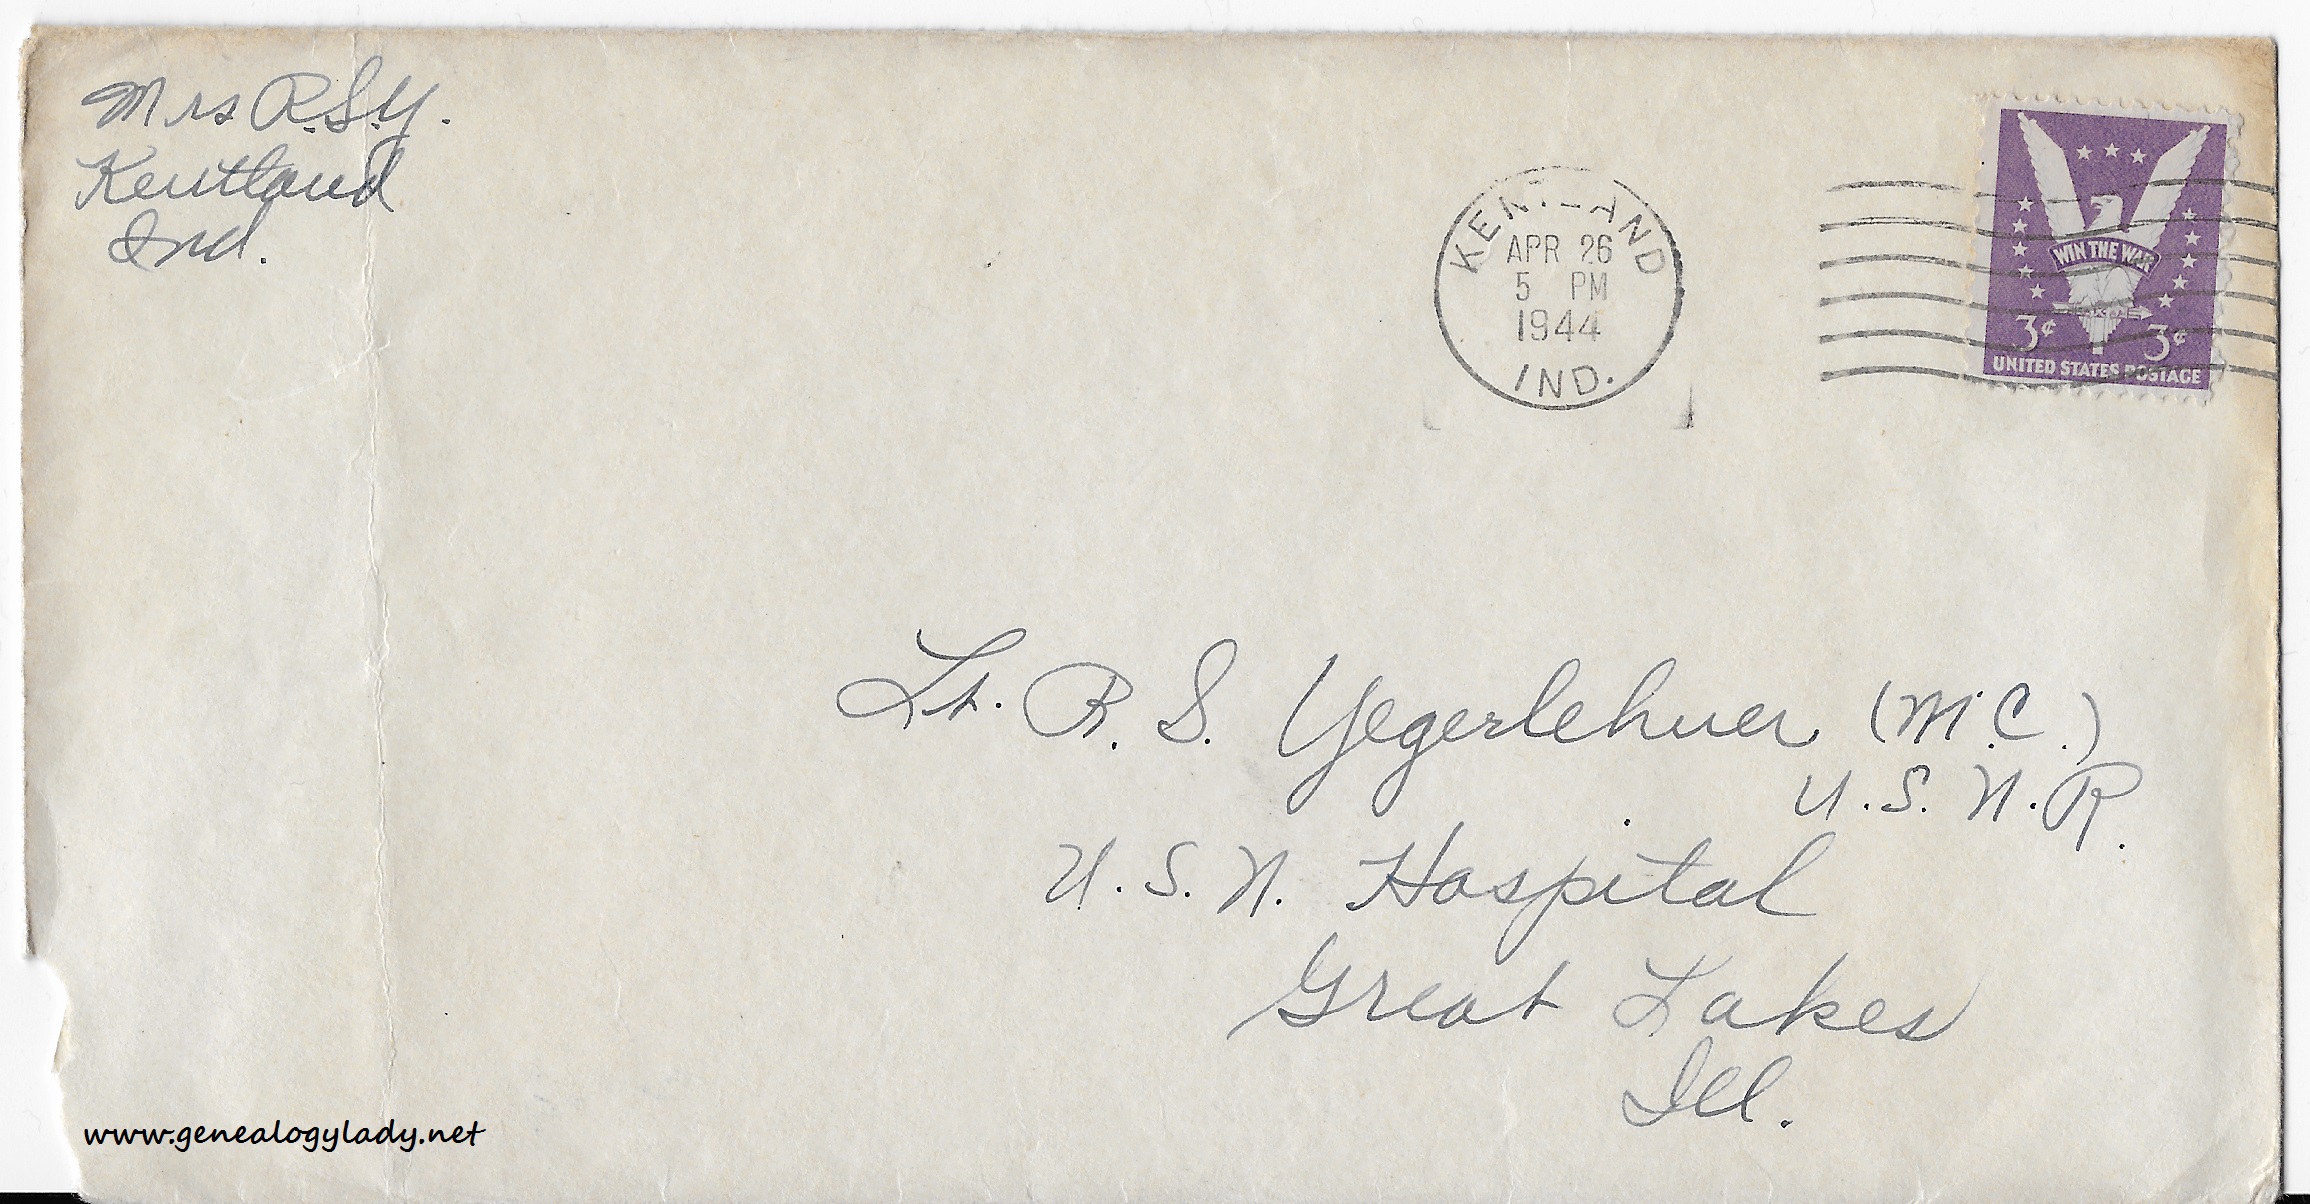 Mrs R.S.Y.
Kentland
Ind.
KENTLAND
APR 26
5 PM
1944
IND.
WIN THE WAR
3¢ 3¢
UNITED STATES POSTAGE
Lt. R. S. Yegerlehner (M.C.)
U.S.N.R.
U.S.N. Hospital
Great Lakes
Ill.
www.genealogylady.net